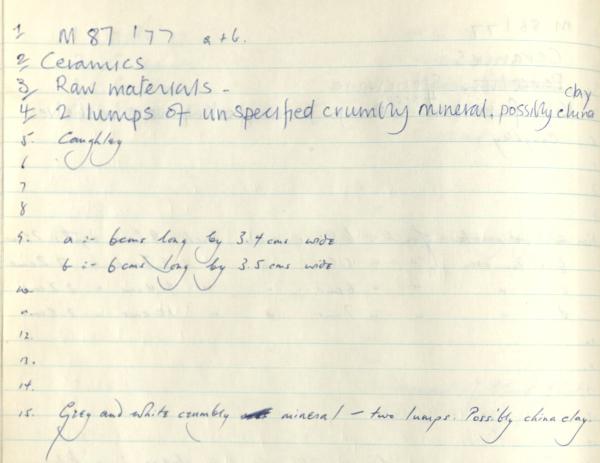 1 M 87 177 a+b.
2 Ceramics
3 Raw materials -
4 2 lumps of unspecified crumbly mineral, possibly china clay
5. Caughley
6
7
8
9. a :- 6cms long by 3.4 cms wide
b :- 6 cms long by 3.5 cms wide
10.
11.
12.
13.
14.
15. Grey and white crumbly mineral - two lumps. Possibly china clay.